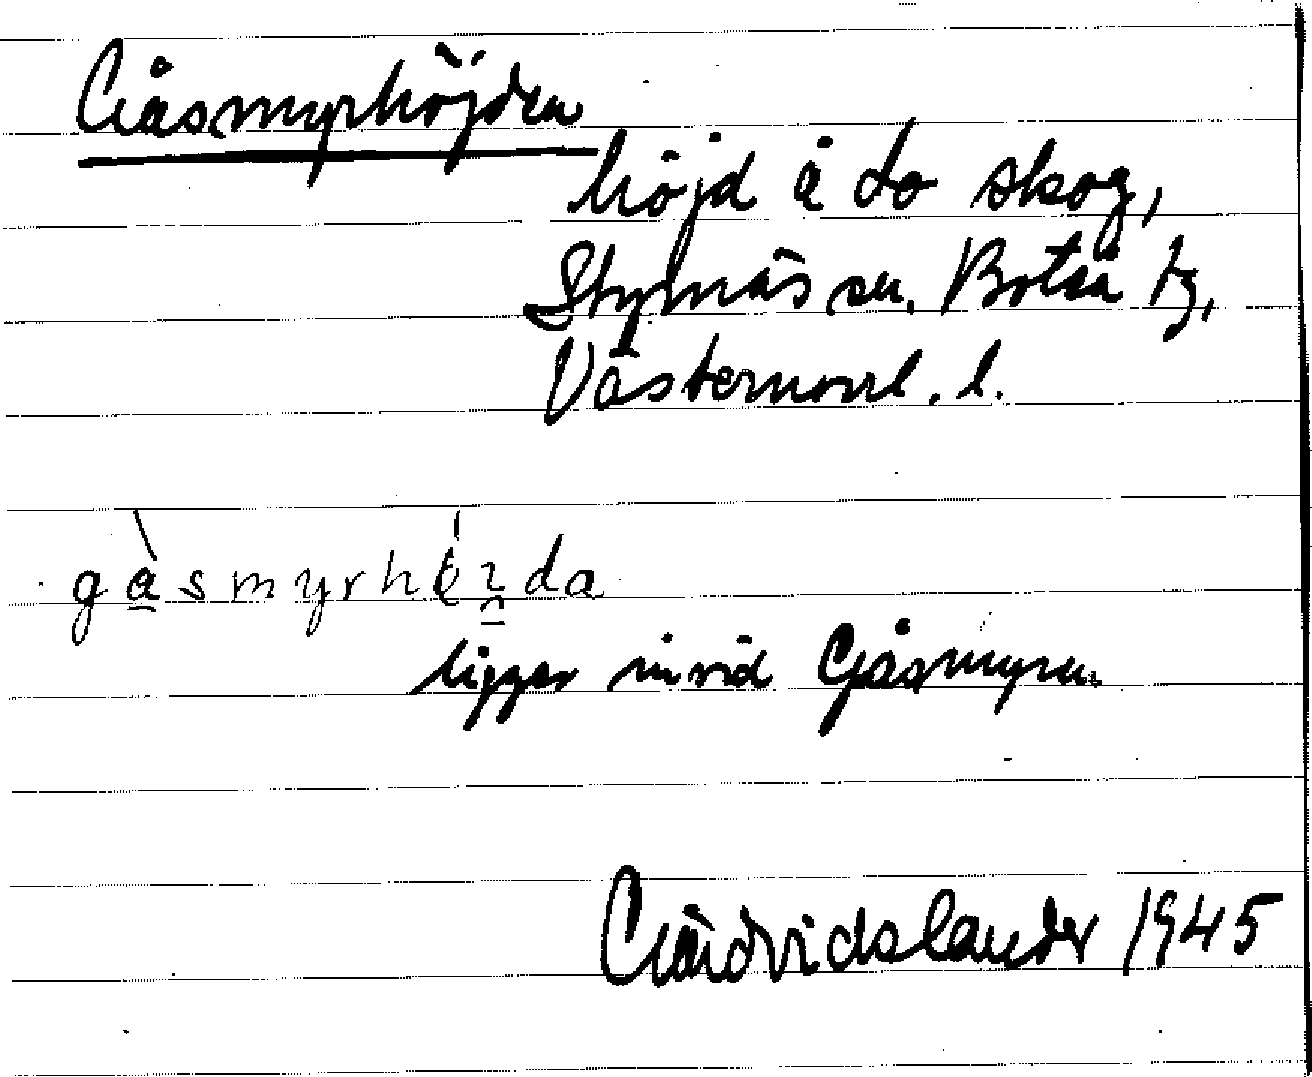 Gåsmyrhöjden
höjd å do skog,
Styrnäs sn. Boteå tg,
Västernorrl. l.
gåsmyrhöi̯da
ligger invid Gåsmyren.
Gärdvidslander 1945